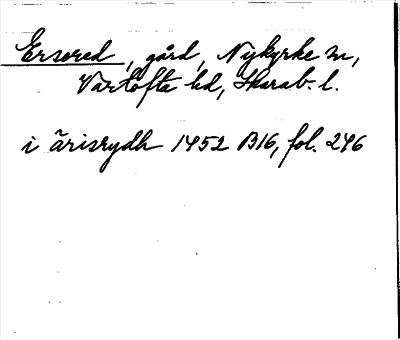 Ersered, gård, Nykyrke sn,
Vartofta hd, Skarab. l.
i ärisrydh 1452 B16, fol. 246